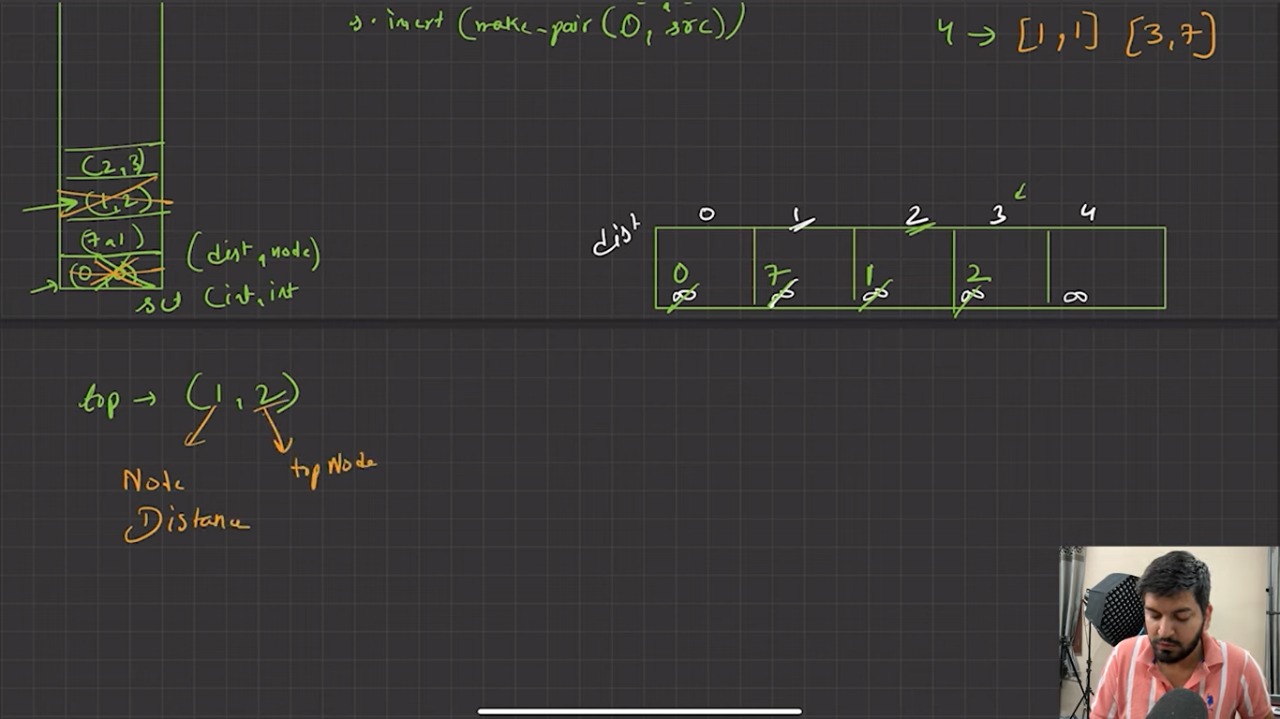 s.insert (make-pair (0, src))
4 → [1,1] [3,7]
(2,3)
(1,2)
(7,1)
(dist, node)
set (int, int
dist 0 1 2 3 4
0 7 1 2
∞ ∞ ∞ ∞ ∞
top → (1, 2)
Node
Distance
topNode